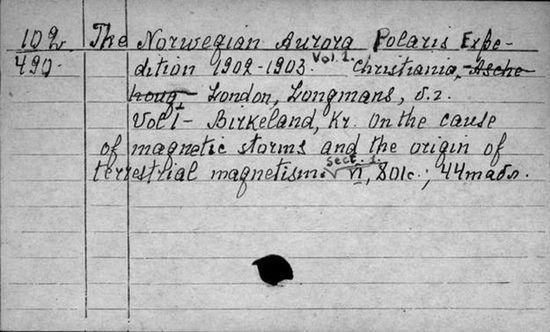 102 The Norwegian Aurora Polaris Expe-
490. dition 1902-1903. Vol. 1. Christiania, Asche-
houg, London, Longmans, s.a.
Vol 1 - Birkeland, Kr. On the cause
of magnetic storms and the origin of
terrestrial magnetism. Sect. 1.
VI, 801c.; 44 табл.